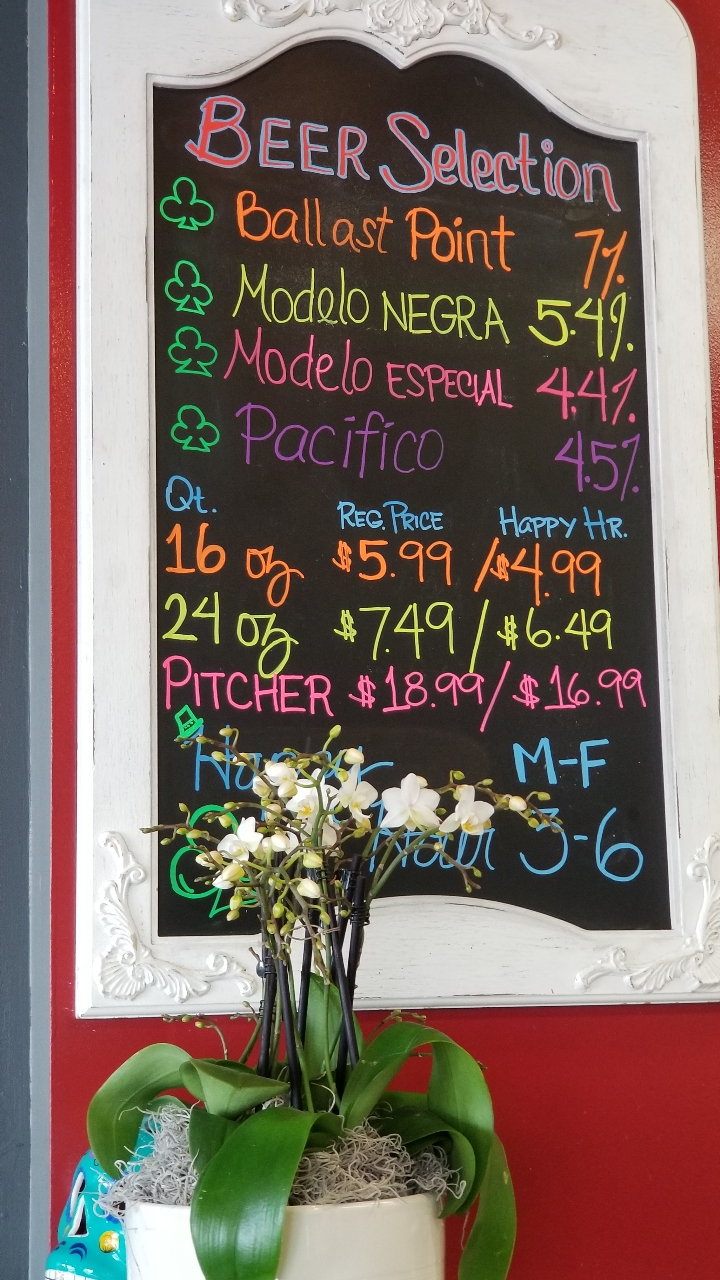 BEER Selection
Ballast Point 7%
Modelo NEGRA 5.4%
Modelo ESPECIAL 4.4%
Pacifico 4.5%
Qt. REG. PRICE HAPPY HR.
16 oz $5.99 / $4.99
24 oz $7.49 / $6.49
PITCHER $18.99 / $16.99
Happy M-F
Hour 3-6